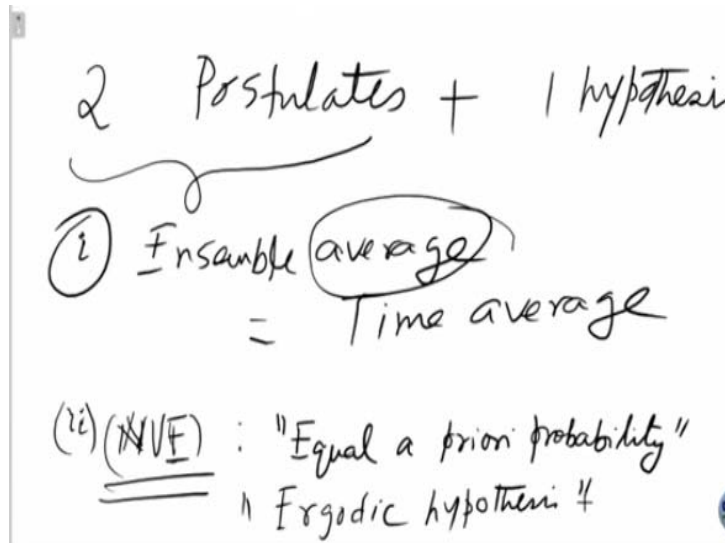 2 Postulates + 1 hypothesi
(i) Ensemble average
= Time average
(ii) (NVE) : "Equal a priori probability"
" Ergodic hypothesis "